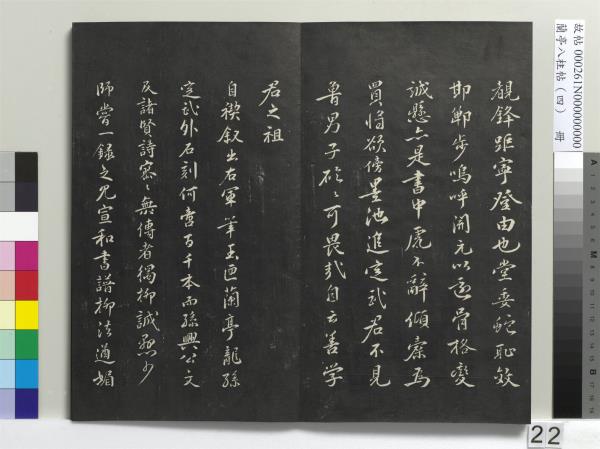 覩鋒距寧登由也堂委蛇恥效
邯鄲步嗚呼開元以還骨格變
誠懸亦是書中虎不辭傾橐為
買將欲傍墨池追定武君不見
魯男子硁〻可畏哉自云善學
君之祖
自禊敘出右軍筆王匜蘭亭龍孫
定武外石刻何啻百千本而孫興公文
及諸賢詩寥〻無傳者獨柳誠懸少
師嘗一錄之見宣和書譜柳法遒媚
故帖 000261N000000000
蘭亭八柱帖（四） 冊
22